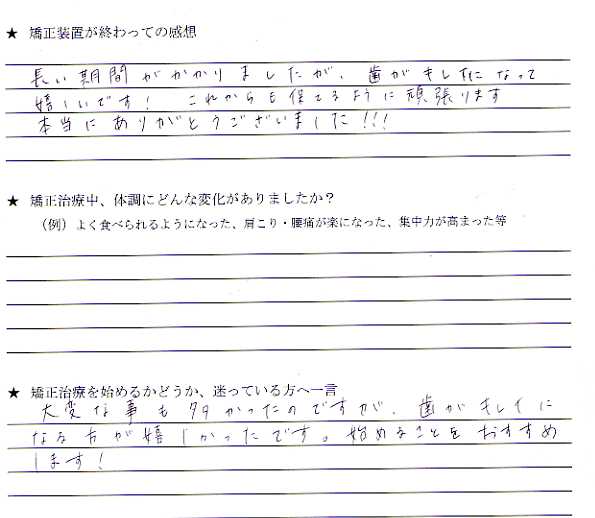 ★ 矯正装置が終わっての感想
長い期間がかかりましたが、歯がキレイになって
嬉しいです! これからも保てるように頑張ります
本当にありがとうございました!!!
★ 矯正治療中、体調にどんな変化がありましたか?
(例)よく食べられるようになった、肩こり・腰痛が楽になった、集中力が高まった等
★ 矯正治療を始めるかどうか、迷っている方へ一言
大変な事も多かったのですが、歯がキレイに
なる方が嬉しかったです。始めることをおすすめ
します!